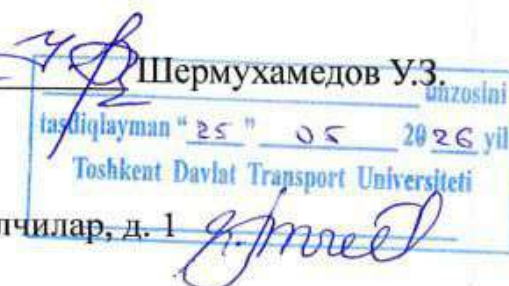 Шермухамедов У.З.
imzosini
tasdiqlayman “25” 05 2026 yil
Toshkent Davlat Transport Universiteti
лчилар, д. 1